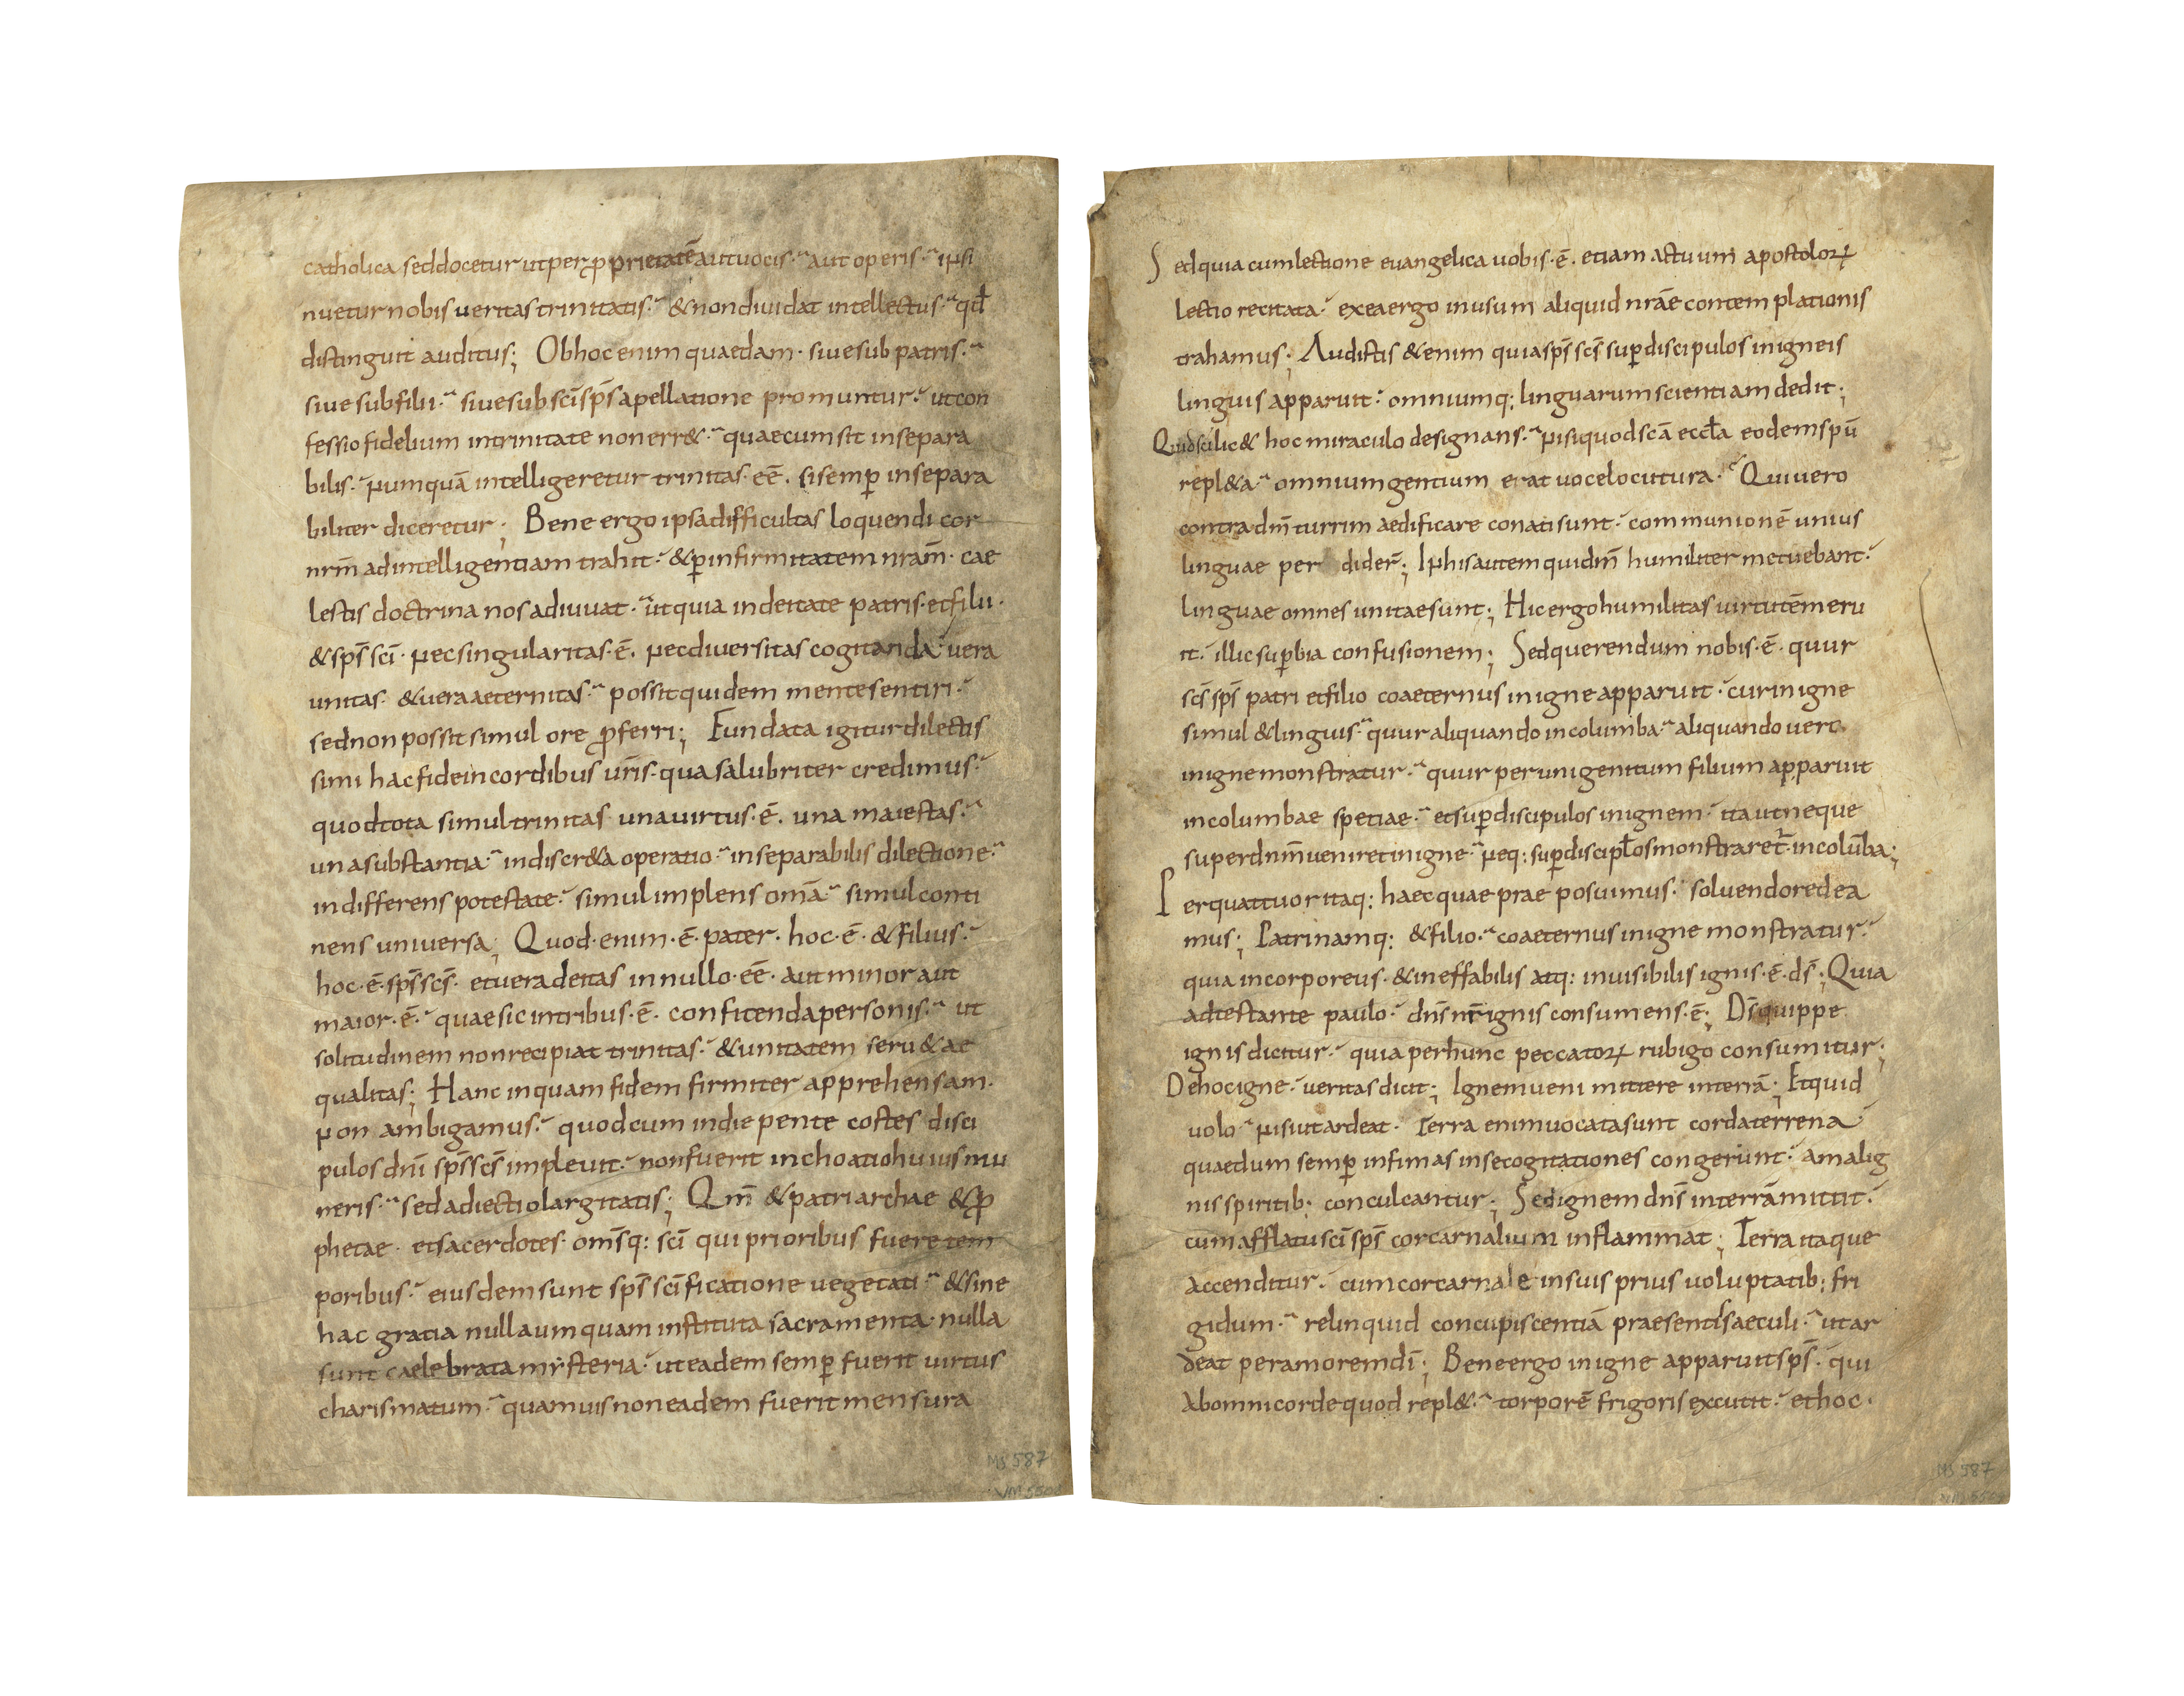 catholica sed docetur ut per ꝓprietatē aut uocis. aut operis. insi
nuetur nobis ueritas trinitatis. & non diuidat intellectus. qđ
distinguit auditus; Ob hoc enim quaedam. siue sub patris.
siue sub filii. siue sub sc̄i sp̄s apellatione promuntur. ut con
fessio fidelium in trinitate non err&. quae cum sit insepara
bilis. numquā intelligeretur trinitas. eē. si semꝑ insepara
biliter diceretur; Bene ergo ipsa difficultas loquendi cor
nr̄m ad intelligentiam trahit. & ꝑ infirmitatem nram̄. cae
lestis doctrina nos adiuuat. ut quia in deitate patris. et filii.
& sp̄s sc̄i. nec singularitas. ē. nec diuersitas cogitanda. uera
unitas. & uera aeternitas. possit quidem mente sentiri.
sed non possit simul ore ꝓferri; Fundata igitur dilectis
simi hac fide in cordibus ur̄is. qua salubriter credimus.
quod tota simul trinitas una uirtus. ē. una maiestas.
una substantia. indiscr&a operatio. inseparabilis dilectione.
indifferens potestate. simul implens omā. simul conti
nens uniuersa; Quod. enim. ē. pater. hoc. ē. & filius.
hoc. ē. sp̄s sc̄s. et uera deitas in nullo. eē. aut minor aut
maior. ē. quae sic in tribus. ē. confitenda personis. ut
solitudinem non recipiat trinitas. & unitatem seru& ae
qualitas; Hanc inquam fidem firmiter apprehensam.
non ambigamus. quod cum in die pente costes disci
pulos dn̄i sp̄s sc̄s impleuit. non fuerit inchoatio huius mu
neris. sed adiectio largitatis; Qm̄ & patriarchae & ꝓ
phetae. et sacerdotes. om̄sq: sc̄i qui prioribus fuere tem
poribus. eiusdem sunt sp̄s sc̄ificatione uegetati. & sine
hac gratia nulla umquam instituta sacramenta. nulla
sunt caelebrata mẏsteria. ut eadem semꝑ fuerit uirtus
charismatum. quamuis non eadem fuerit mensura
Sed quia cum lectione euangelica uobis. ē. etiam actuum apostoloꝝ
lectio recitata. ex ea ergo in usum aliquid nrāe contemplationis
trahamus; Audistis & enim quia sp̄s sc̄s suꝑ discipulos in igneis
linguis apparuit. omniumq: linguarum scientiam dedit;
Quid scilic& hoc miraculo designans. nisi quod scā eccƚa eodem spū
repl&a. omnium gentium erat uoce locutura. Qui uero
contra dm̄ turrim aedificare conati sunt. communionē unius
linguae per dider̄; In his autem qui dm̄ humiliter metuebant.
linguae omnes unitae sunt; Hic ergo humilitas uirtutē meru
it. illic suꝑbia confusionem; Sed querendum nobis. ē. quur
sc̄s sp̄s patri et filio coaeternus in igne apparuit. cur in igne
simul & linguis. quur aliquando in columba. aliquando uero
in igne monstratur. quur per unigenitum filium apparuit
in columbae spetiae. et suꝑ discipulos in ignem. ita ut neque
super dn̄m ueniret in igne. neq: suꝑ discipƚos monstraret̄. in colum̄ba;
Per quattuor itaq: haec quae prae posuimus. soluendo redea
mus; Patri namq: & filio. coaeternus in igne monstratur.
quia incorporeus. & ineffabilis atq: inuisibilis ignis. ē. ds̄; Quia
adtestante paulo. dn̄s nr̄ ignis consumens. ē; Ds̄ quippe
ignis dicitur. quia per hunc peccatoꝝ rubigo consumitur;
De hoc igne. ueritas dicit; Ignem ueni mittere in terrā; Et quid
uolo. nisi ut ardeat. Terra enim uocata sunt corda terrena.
quae dum semꝑ infimas in se cogitationes congerunt. a malig
nis spiritib: conculcantur; Sed ignem dn̄s in terrā mittit.
cum afflatu sc̄i sp̄s cor carnalium inflammat; Terra itaque
accenditur. cum cor carnale in suis prius uoluptatib: fri
gidum. relinquid concupiscentiā praesentis saeculi. ut ar
deat per amorem dī; Bene ergo in igne apparuit sp̄s. qui
ab omni corde quod repl&. torporē frigoris excutit. et hoc.
MS 587
MS 587